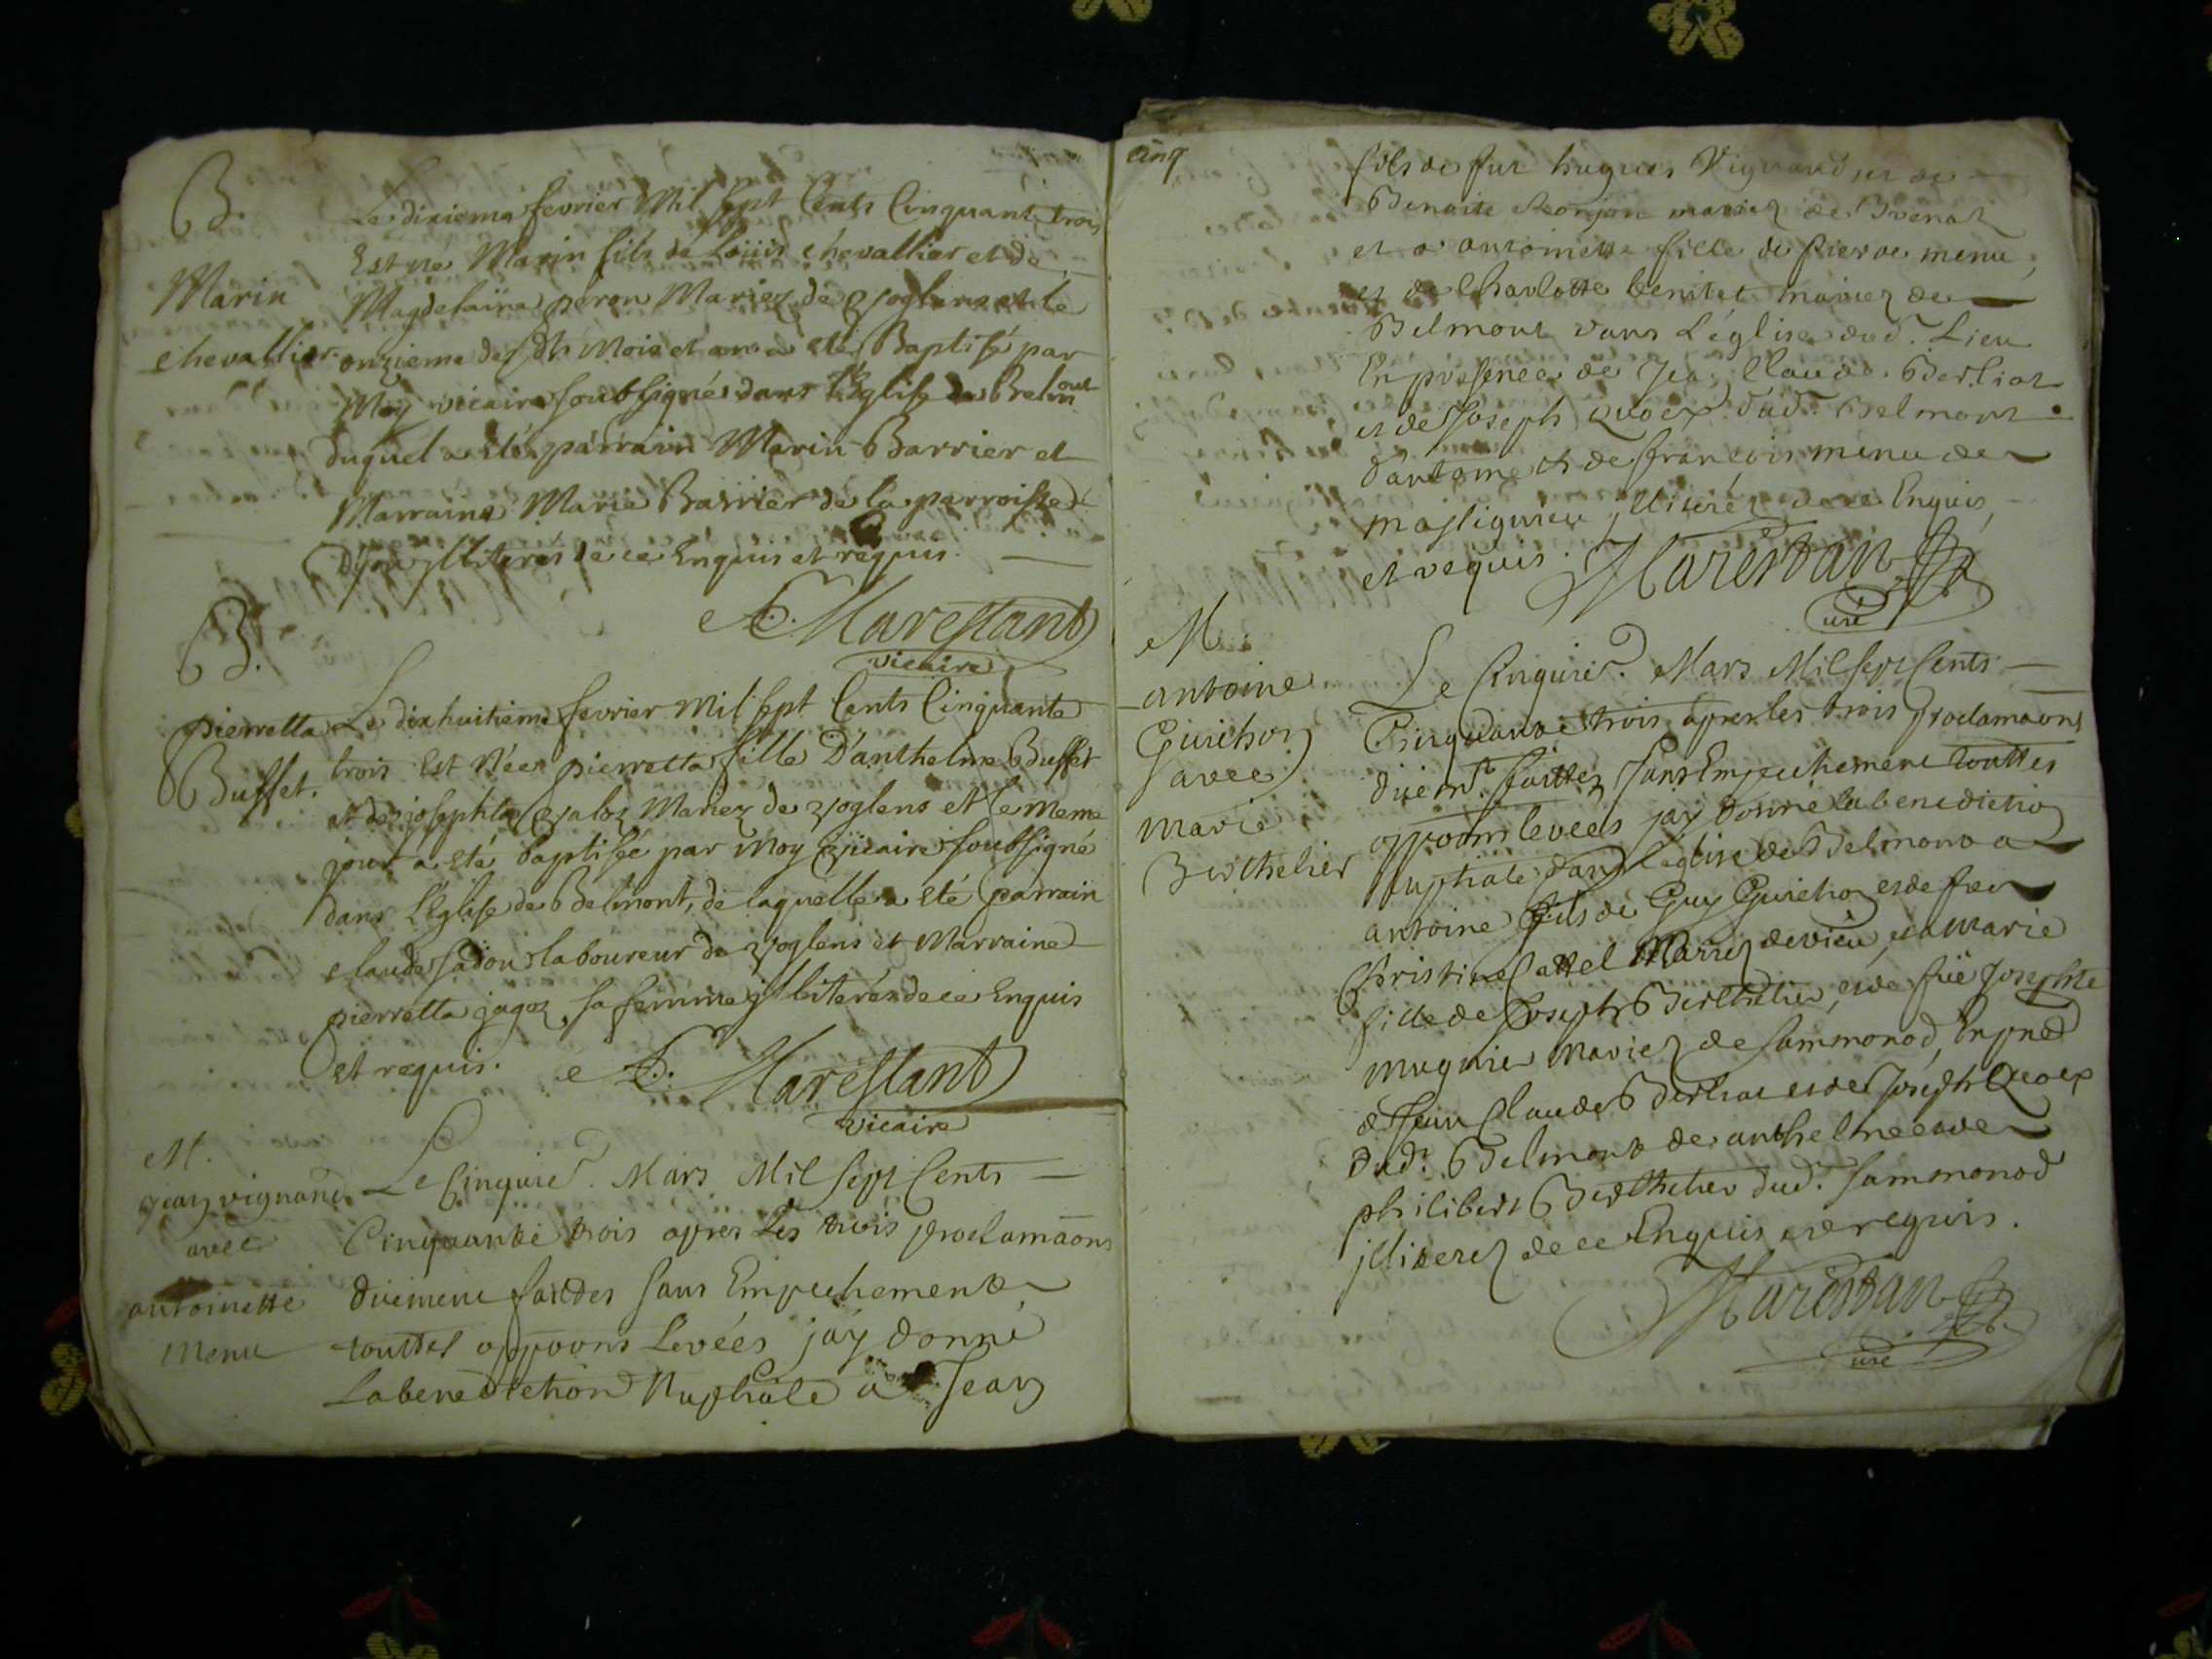 B.
Marin
chevallier.
Le dixieme fevrier Mil sept Cents Cinquant trois
Est né Marin fils de Loüis chevallier et de
Magdelaine peron Mariez de yoglens et le
onzieme des dts Mois et an a eté Baptisé par
Moy vicaire soubsigné dans l'Eglise de Belmont
duquel a eté parrain Marin Barrier et
Marraine Marie Barrier de la parroisse
illiterés de ce Enquis et requis.
Marestant
vicaire
B.
pierretta
Buffet.
Le dixhuitieme fevrier Mil sept Cents Cinquante
trois Est Née pierretta fille D'anthelme Buffet
et de josephta Mariez de yoglens et le meme
jour a eté baptisée par Moy vicaire soubsigné
dans l'Eglise de Belmont, de laquelle a eté parrain
claude sadou laboureur de yoglens et Marraine
pierretta jagoz sa femme illiterés de ce Enquis
et requis.
Marestant
vicaire
M.
jean vignand
avec
antoinette
Menu
Le Cinquie. Mars Mil sept Cents
Cinquante trois apres Les trois proclamaons
duement faittes sans Empechement
touttes oppoons Levées j'ay donné
La benediction Nuptiale a Jean
cinq
fils de fut hugues Vignand et de
Benoite mariez de Brenaz
et a antoinette fille de pierre menu,
et de Charlotte benitet mariez de
Belmont dans L'église dud. Lieu
En presence de Jean Claude Berliat
et de Joseph quoex dud. Belmont
d'antoine et de francois menu de
massignieu jlliterés de ce Enquis,
et requis. Marestan
curé
M.
antoine
Guichon
avec
marie
Berthelier
Le Cinquie. Mars Mil sept Cents
Cinquante trois apres les trois proclamaons
duemt. faittes sans Empechement touttes
oppoons levées jay donné la benediction
nuptiale dans l'eglise de Belmont a
antoine fils de Guy Guichon et de feu
Christine Cattel Mariez de vieu, et a marie
fille de Joseph Berthelier, et de füe Josephte
muguier mariez de sammonod, En pnce
de Jean Claude Berliat et de Joseph Quoex
dud. Belmont de anthelme et de
philibert Berthelier dud. sammonod
jlliterez de ce Enquis et requis.
Marestan
curé